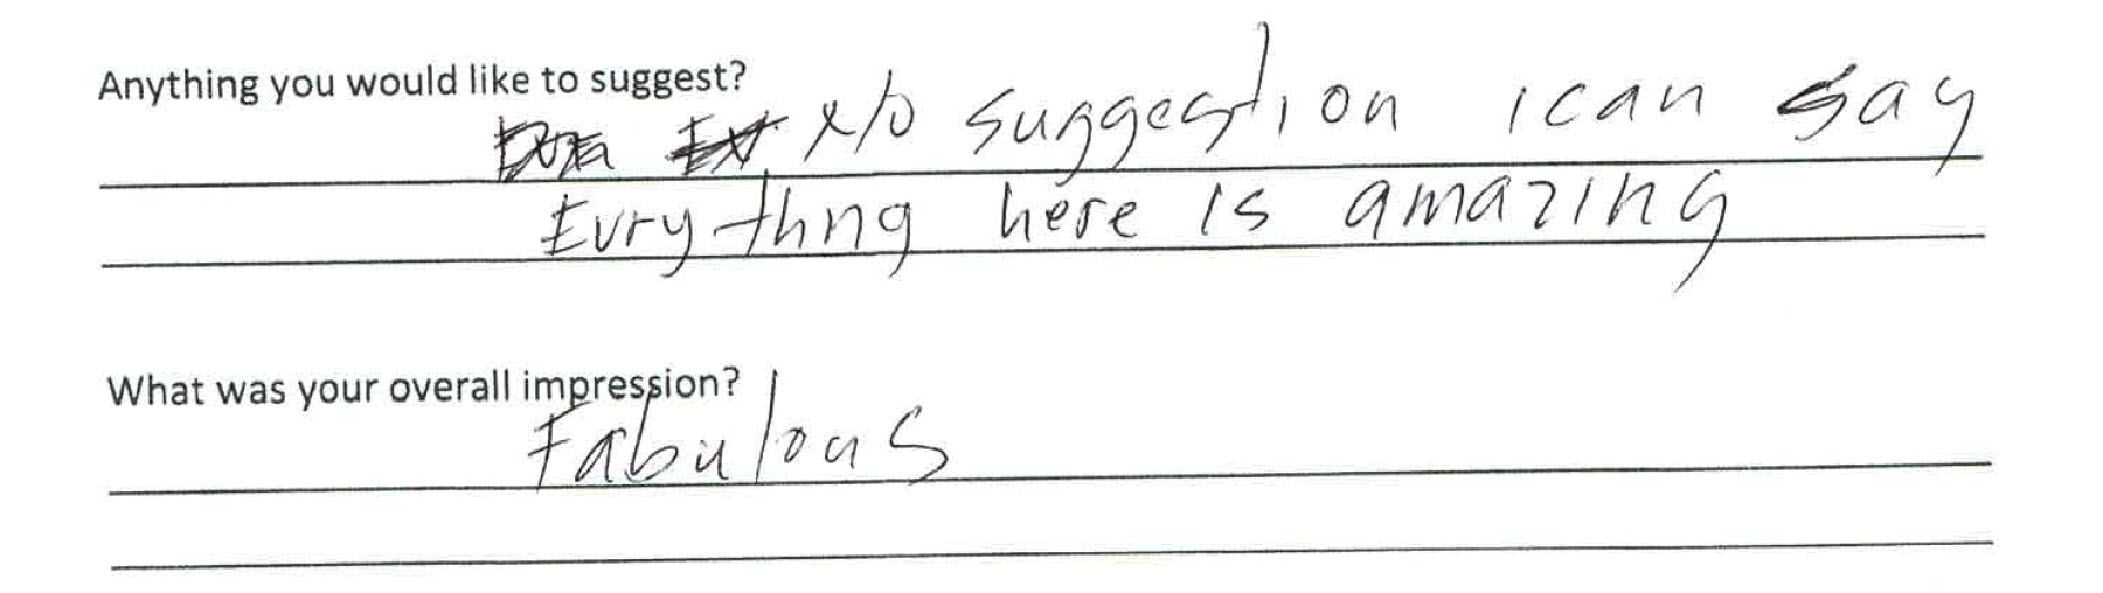 Anything you would like to suggest?
No suggestion i can say
Evrythng here is amazing
What was your overall impression?
Fabulous